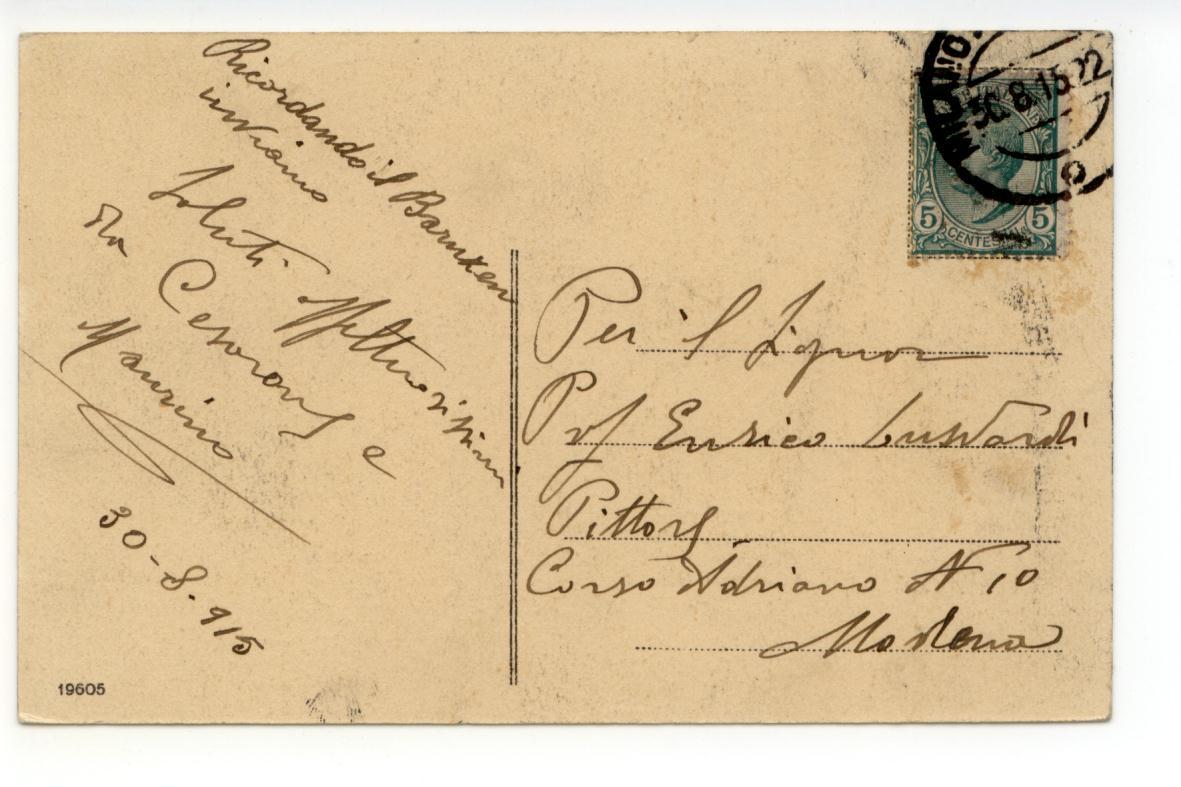 Ricordando il
inviamo
Saluti affettuosissimi
da Cesarone e
Maurino
30-8.915
19605
MILANO
30.8.15 22
5 CENTESIMI 5
Per il Signor
Prof Enrico Lugardi
Pittore
Corso Adriano N 10
Modena